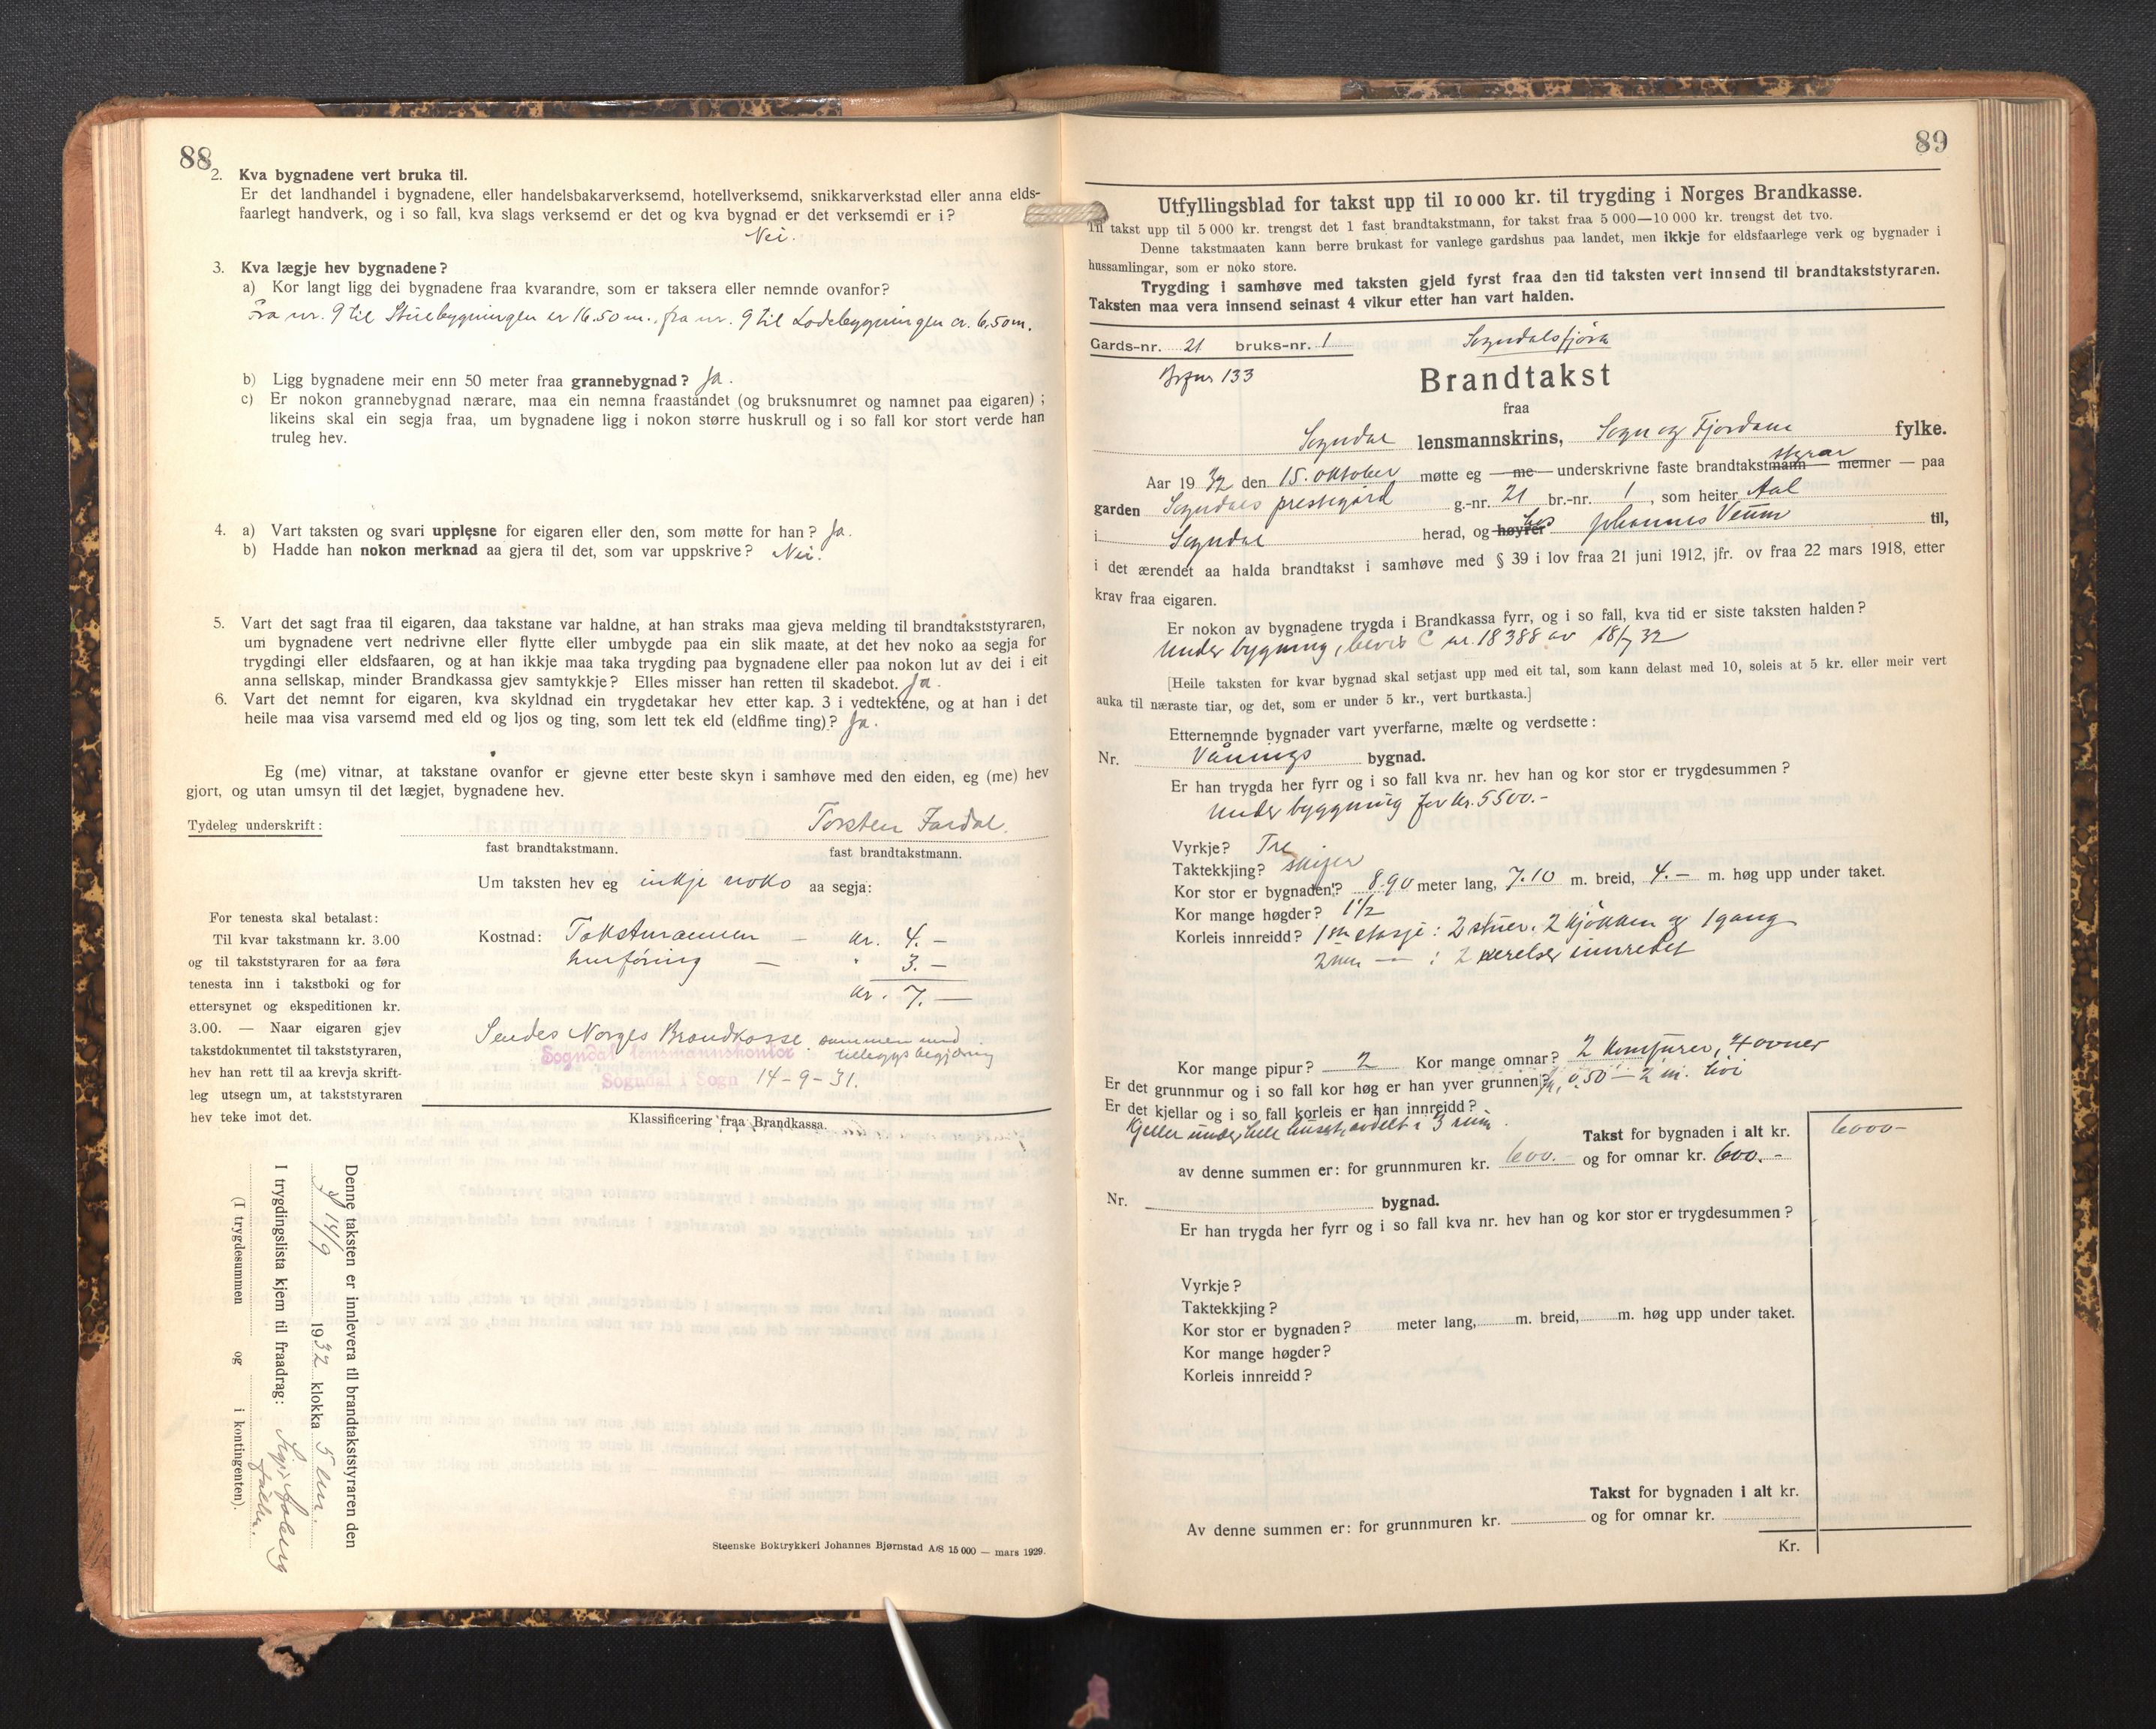 88
2. Kva bygnadene vert bruka til.
Er det landhandel i bygnadene, eller handelsbakarverksemd, hotellverksemd, snikkarverkstad eller anna elds-
faarlegt handverk, og i so fall, kva slags verksemd er det og kva bygnad er det verksemdi er i?
Nei.
3. Kva lægje hev bygnadene?
a) Kor langt ligg dei bygnadene fraa kvarandre, som er taksera eller nemnde ovanfor?
Fra nr. 9 til Stuebygningen er 16.50 m., fra nr. 9 til Lodebygningen er 6.50 m.
b) Ligg bygnadene meir enn 50 meter fraa grannebygnad? Ja.
c) Er nokon grannebygnad nærare, maa ein nemna fraastandet (og bruksnumret og namnet paa eigaren);
likeins skal ein segja fraa, um bygnadene ligg i nokon større huskrull og i so fall kor stort verde han
truleg hev.
4. a) Vart taksten og svari upplesne for eigaren eller den, som møtte for han? Ja.
b) Hadde han nokon merknad aa gjera til det, som var uppskrive? Nei.
5. Vart det sagt fraa til eigaren, daa takstane var haldne, at han straks maa gjeva melding til brandtakststyraren,
um bygnadene vert nedrivne eller flytte eller umbygde paa ein slik maate, at det hev noko aa segja for
trygdingi eller eldsfaaren, og at han ikkje maa taka trygding paa bygnadene eller paa nokon lut av dei i eit
anna sellskap, minder Brandkassa gjev samtykkje? Elles misser han retten til skadebot. Ja.
6. Vart det nemnt for eigaren, kva skyldnad ein trygdetakar hev etter kap. 3 i vedtektene, og at han i det
heile maa visa varsemd med eld og ljos og ting, som lett tek eld (eldfime ting)? Ja.
Eg (me) vitnar, at takstane ovanfor er gjevne etter beste skyn i samhøve med den eiden, eg (me) hev
gjort, og utan umsyn til det lægjet, bygnadene hev.
Tydeleg underskrift: Torsten Fardal.
fast brandtakstmann. fast brandtakstmann.
Um taksten hev eg inkje noko aa segja:
For tenesta skal betalast:
Til kvar takstmann kr. 3.00
og til takststyraren for aa føra
tenesta inn i takstboki og for
ettersynet og ekspeditionen kr.
3.00. — Naar eigaren gjev
takstdokumentet til takststyraren,
hev han rett til aa krevja skrift-
leg utsegn um, at takststyraren
hev teke imot det.
Kostnad: Takstmannen — kr. 4.—
Innføring — " 3.—
kr. 7.—
Sendes Norges Brandkasse sammen med
tilleggsbegjæring
Sogndal lensmannskontor
Sogndal i Sogn 14-9-31.
Klassificering fraa Brandkassa.
Denne taksten er innlevera til brandtakststyraren den
14/9 1932 klokka 5 em.
I trygdingslista kjem til fraadrag:
(I trygdesummen og i kontingenten).
Steenske Boktrykkeri Johannes Bjørnstad A/S 15 000 — mars 1929.
89
Utfyllingsblad for takst upp til 10 000 kr. til trygding i Norges Brandkasse.
Til takst upp til 5 000 kr. trengst det 1 fast brandtakstmann, for takst fraa 5 000—10 000 kr. trengst det tvo.
Denne takstmaaten kann berre brukast for vanlege gardshus paa landet, men ikkje for eldsfaarlege verk og bygnader i
hussamlingar, som er noko store.
Trygding i samhøve med taksten gjeld fyrst fraa den tid taksten vert innsend til brandtakststyraren.
Taksten maa vera innsend seinast 4 vikur etter han vart halden.
Gards-nr. 21 bruks-nr. 1 Sogndalsfjøra
133
Brandtakst
fraa
Sogndal lensmannskrins, Sogn og Fjordane fylke.
Aar 1932 den 15. oktober møtte eg — me — underskrivne faste brandtakstmann styrar — menner — paa
garden Sogndals prestegård g.-nr. 21 br.-nr. 1, som heiter Aal
i Sogndal herad, og høyrer hos Johannes Veum til,
i det ærendet aa halda brandtakst i samhøve med § 39 i lov fraa 21 juni 1912, jfr. ov fraa 22 mars 1918, etter
krav fraa eigaren.
Er nokon av bygnadene trygda i Brandkassa fyrr, og i so fall, kva tid er siste taksten halden?
Under bygning, bevis C nr. 18388 av 18/7 32
[Heile taksten for kvar bygnad skal setjast upp med eit tal, som kann delast med 10, soleis at 5 kr. eller meir vert
auka til næraste tiar, og det, som er under 5 kr., vert burtkasta.]
Etternemnde bygnader vart yverfarne, mælte og verdsette:
Nr. Vånings bygnad.
Er han trygda her fyrr og i so fall kva nr. hev han og kor stor er trygdesummen?
Under byggning for kr. 5500.-
Vyrkje? Tre
Taktekkjing? skifer
Kor stor er bygnaden? 8.90 meter lang, 7.10 m. breid, 4.— m. høg upp under taket.
Kor mange høgder? 1 1/2
Korleis innreidd? 1ste etasje: 2 stuer, 2 kjøkken og 1 gang
2nen — : 2 værelser innredet
Kor mange pipur? 2 Kor mange omnar? 2 komfurer, 4 ovner
Er det grunnmur og i so fall kor høg er han yver grunnen? Ja, 0,50 — 2 m. høi
Er det kjellar og i so fall korleis er han innreidd?
Kjeller under hele huset, avdelt i 3 rum.
Takst for bygnaden i alt kr. 6000-
av denne summen er: for grunnmuren kr. 600.- og for omnar kr. 600.-
Nr. bygnad.
Er han trygda her fyrr og i so fall kva nr. hev han og kor stor er trygdesummen?
Vyrkje?
Taktekkjing?
Kor stor er bygnaden? meter lang, m. breid, m. høg upp under taket.
Kor mange høgder?
Korleis innreidd?
Takst for bygnaden i alt kr.
Av denne summen er: for grunnmuren kr. og for omnar kr.
Kr.